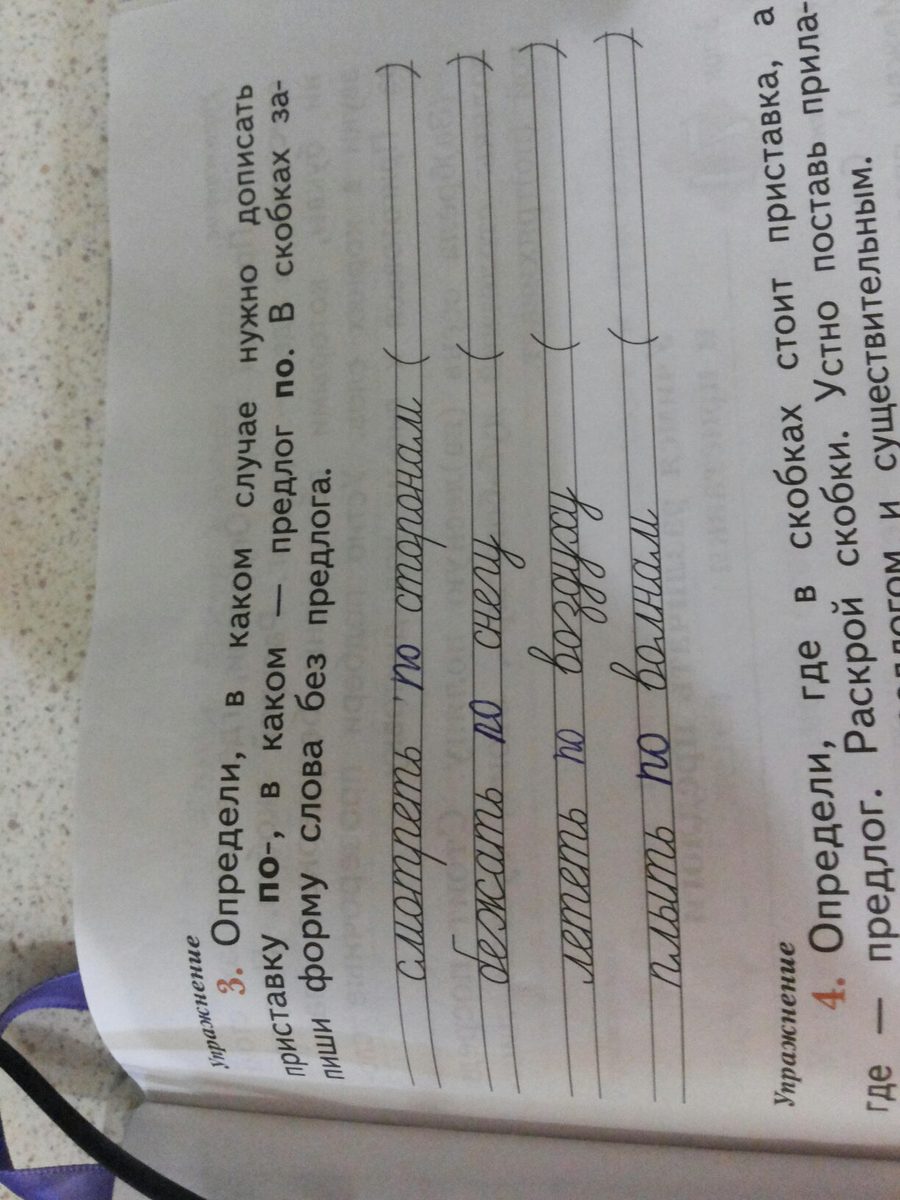 Упражнение
3. Определи, в каком случае нужно дописать
приставку по-, в каком — предлог по. В скобках за-
пиши форму слова без предлога.
смотреть по сторонам ( )
бежать по снегу ( )
лететь по воздуху ( )
плыть по волнам ( )
Упражнение
4. Определи, где в скобках стоит приставка, а
где — предлог. Раскрой скобки. Устно поставь прила-
и существительным.